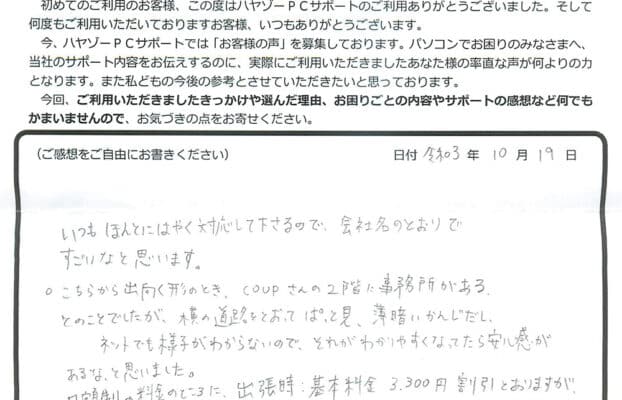 初めてのご利用のお客様、この度はハヤゾーPCサポートのご利用ありがとうございました。そして
何度もご利用いただいておりますお客様、いつもありがとうございます。
今、ハヤゾーPCサポートでは「お客様の声」を募集しております。パソコンでお困りのみなさまへ、
当社のサポート内容をお伝えするのに、実際にご利用いただきましたあなた様の率直な声が何よりの力
となります。また私どもの今後の参考とさせていただきたいと思っております。
今回、ご利用いただきましたきっかけや選んだ理由、お困りごとの内容やサポートの感想など何でも
かまいませんので、お気づきの点をお寄せください。
(ご感想をご自由にお書きください) 日付 令和3 年 10 月 19 日
いつも ほんとにはやく対応して下さるので、会社名のとおりで
すごいなと思います。
○ こちらから出向く形のとき、COUPさんの2階に事務所がある、
とのことでしたが、横の道路をとおって ぱっと見、薄暗いかんじだし、
ネットでも様子がわからないので、それがわかりやすくなってたら安心感が
あるな、と思いました。
料金のところに、出張時:基本料金 3,300円 割引とおりますが、